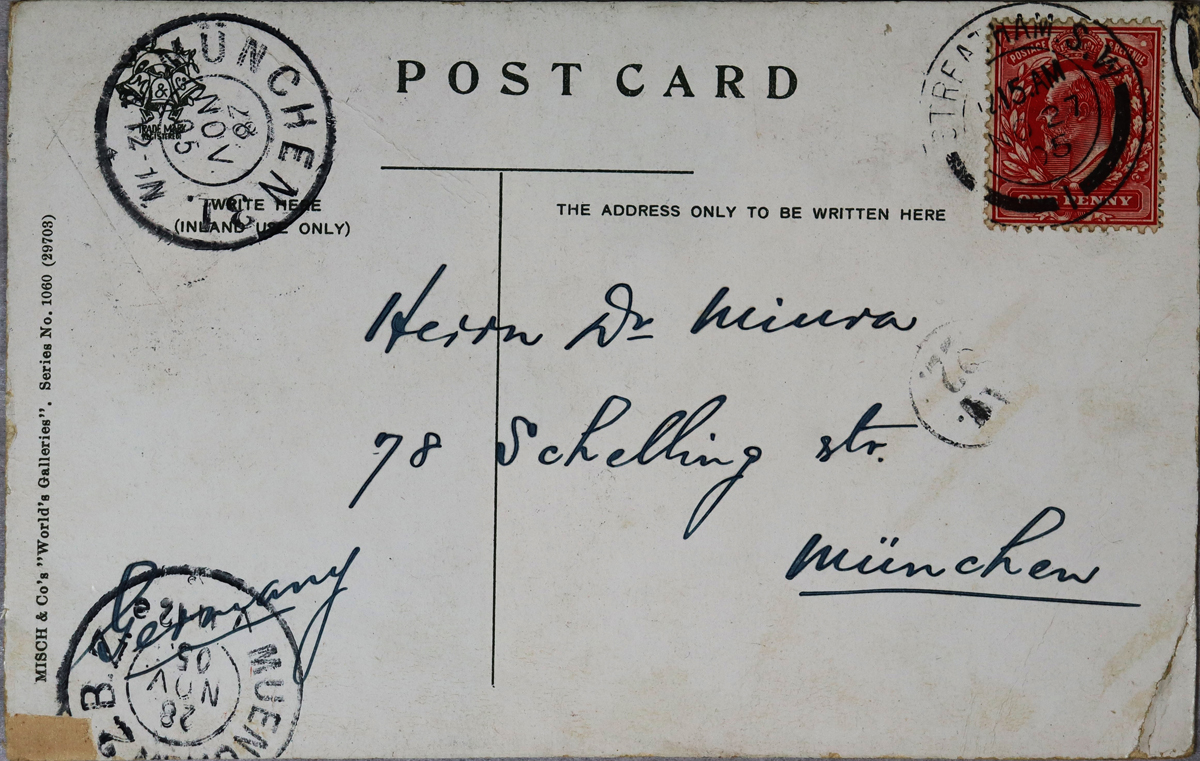 POST CARD
MÜNCHEN
28
NOV.
05
M & C
TRADE MARK
REGISTERED
WRITE HERE
(INLAND USE ONLY)
THE ADDRESS ONLY TO BE WRITTEN HERE
STREATHAM S.W.
15 AM
27
05
POSTAGE
ONE PENNY
Herrn Dr Miura
78 Schelling str.
München
Germany
MUENCHEN
28
NOV
05
2 B.
MISCH & Co's "World's Galleries". Series No. 1060 (29703)